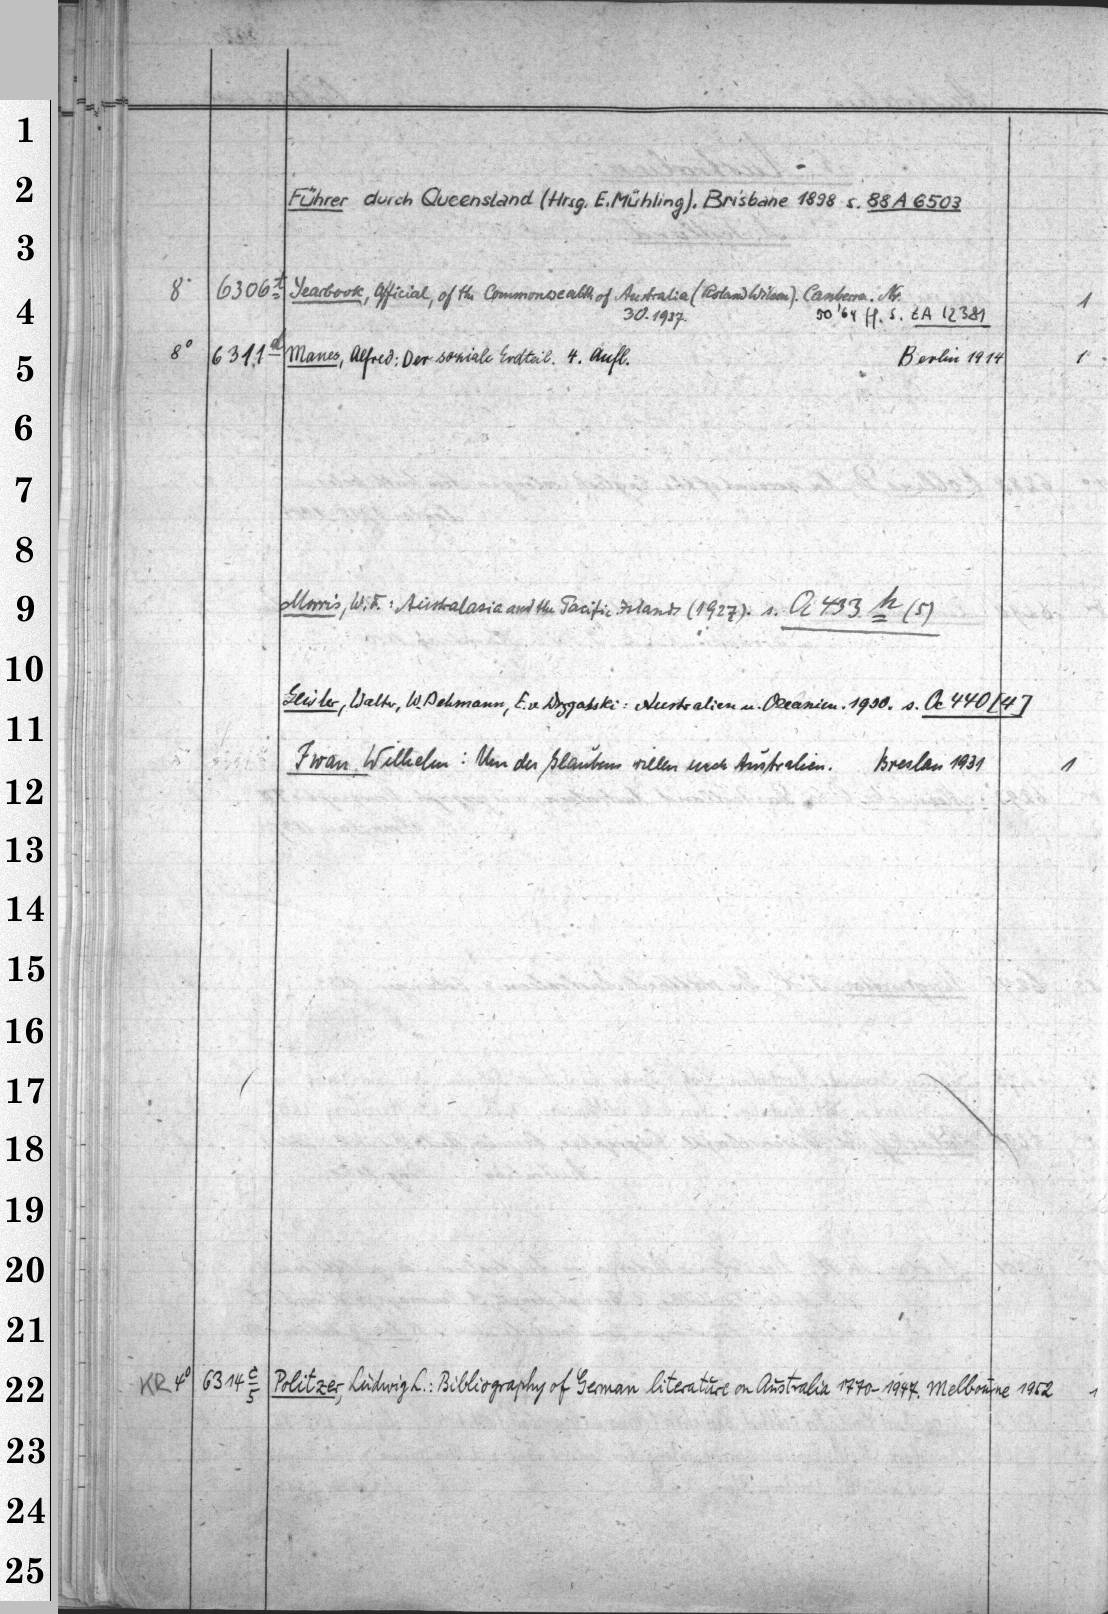 1
2
Führer durch Queensland (Hrsg. E. Mühling). Brisbane 1898 s. 88 A 6503
3
8° 6306 t Yearbook, Official, of the Commonwealth of Australia (Roland Wilson). Canberra. Nr. 1
4
30. 1937. 50 '64 ff. s. ZA 12381
8° 6311 d Manes, Alfred: Der soziale Erdteil. 4. Aufl. Berlin 1914 1
5
6
7
8
9
Morris, W. F.: Australasia and the Pacific Islands (1927). s. Oc 433 h (5)
10
Geisler, Walter, W. Behrmann, E. v. Drygalski: Australien u. Ozeanien. 1930. s. Oc 440 [4]
11
Iwan, Wilhelm: Um des Glaubens willen nach Australien. Breslau 1931 1
12
13
14
15
16
17
18
19
20
21
22
KR 4° 6314 c/5 Politzer, Ludwig L.: Bibliography of German literature on Australia 1770-1947. Melbourne 1952 1
23
24
25